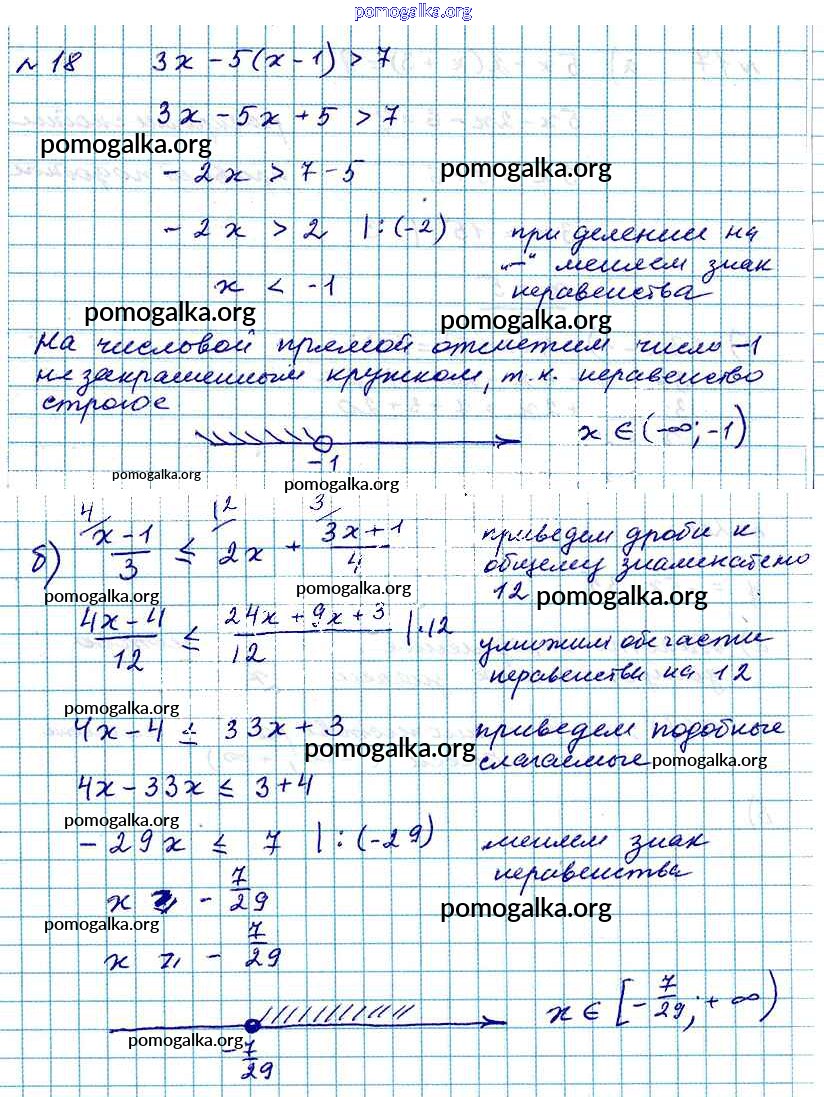 pomogalka.org
№ 18 3x - 5(x - 1) > 7
3x - 5x + 5 > 7
pomogalka.org
- 2x > 7 - 5 pomogalka.org
- 2x > 2 | : (-2) при делении на
"-" меняем знак
x < -1 неравенства
pomogalka.org pomogalka.org
На числовой прямой отметим число -1
не закрашенным кружком, т.к. неравенство
строгое
x ∈ (-∞; -1)
-1
pomogalka.org pomogalka.org
б) 4/ (x - 1)/3 ≤ 12/ 2x + 3/ (3x + 1)/4 приведем дроби к
общему знаменателю
12
pomogalka.org pomogalka.org pomogalka.org
(4x - 4)/12 ≤ (24x + 9x + 3)/12 | · 12 умножим обе части
неравенства на 12
pomogalka.org
4x - 4 ≤ 33x + 3 приведем подобные
слагаемые
pomogalka.org pomogalka.org
4x - 33x ≤ 3 + 4
pomogalka.org
- 29x ≤ 7 | : (-29) меняем знак
неравенства
x ≥ - 7/29
pomogalka.org pomogalka.org
x ≥ - 7/29
x ∈ [- 7/29; + ∞)
pomogalka.org
- 7/29